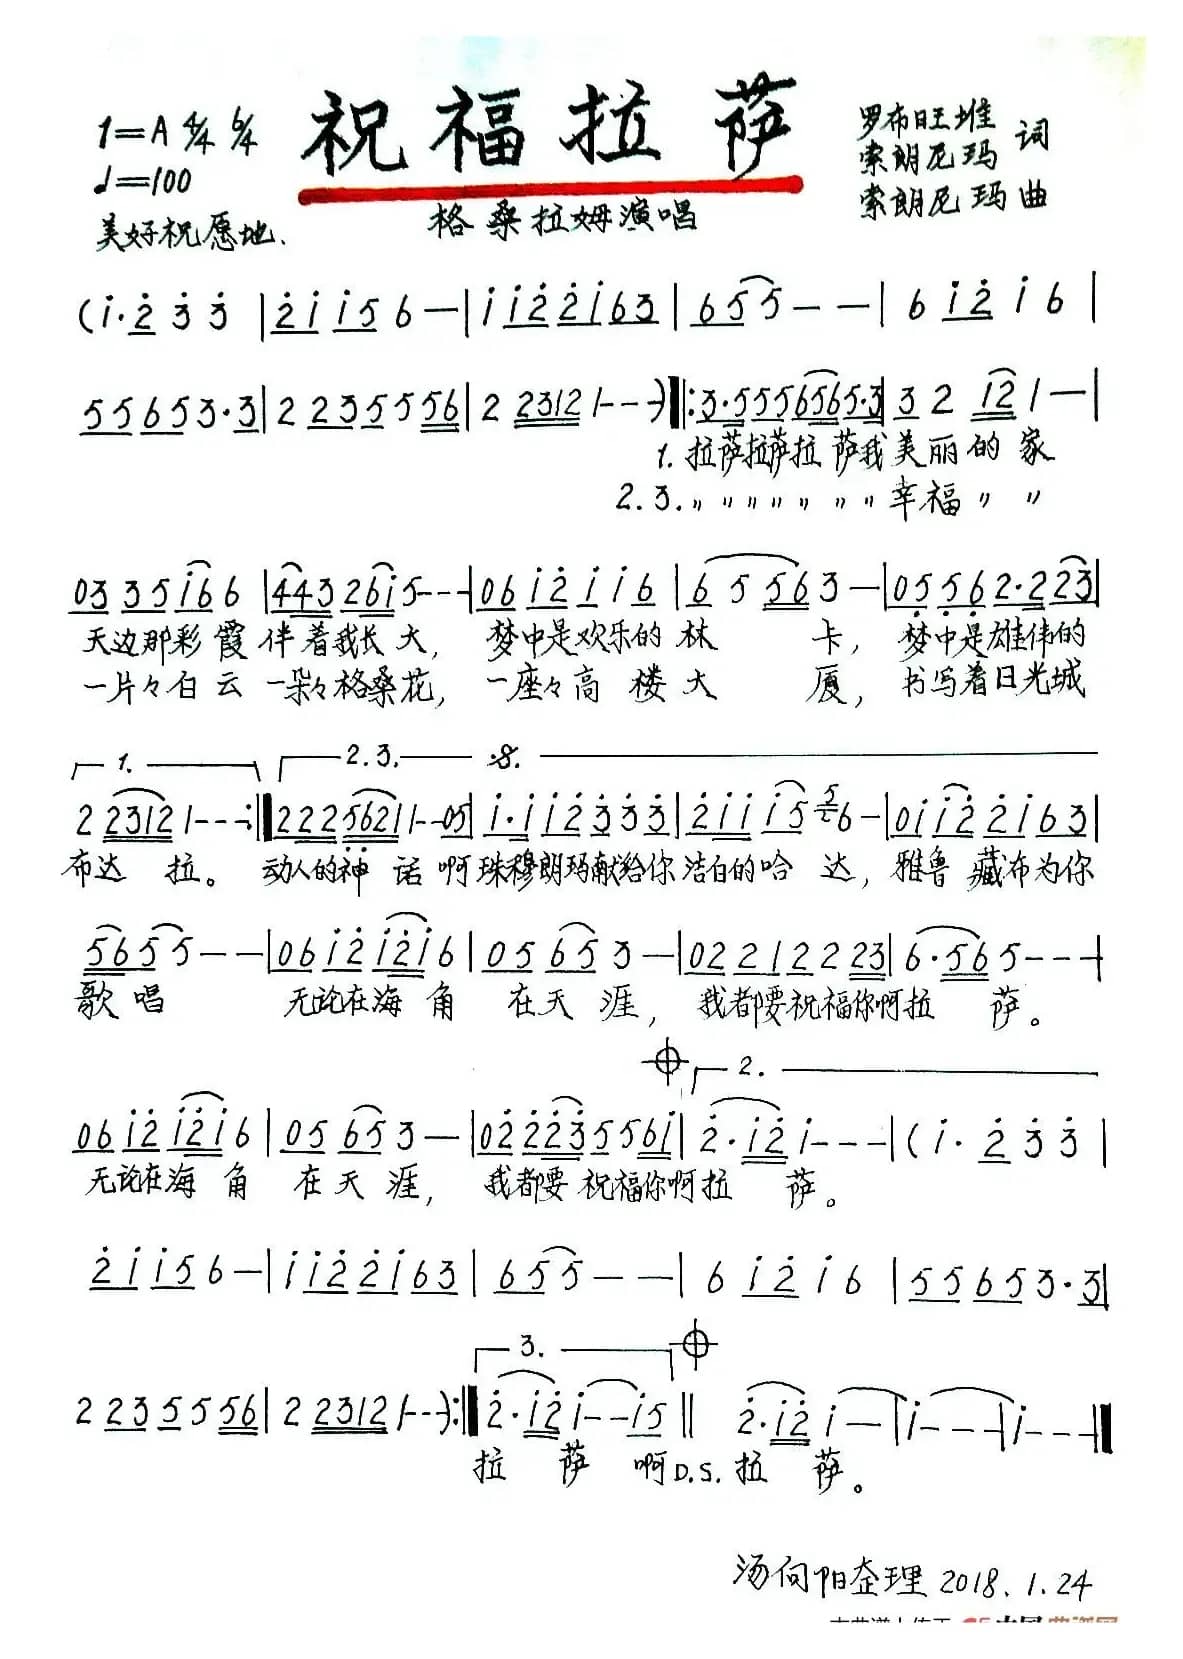 祝福拉萨
1=A 4/4 6/4
♩=100
美好祝愿地.
格桑拉姆演唱
罗布旺堆
索朗尼玛 词
索朗尼玛 曲
(i·2 3 3 | 2 i i 5 6 — | i i 2 2 i 6 3 | 6 5 5 — — | 6 i 2 i 6 |
5 5 6 5 3·3 | 2 2 3 5 5 5 6 | 2 2 3 1 2 1 - - -) ‖: 3·5 5 5 6 5 6 5·3 | 3 2 1 2 1 — |
1. 拉萨拉萨拉 萨我 美丽的 家
2.3. 〃 〃 〃 〃 〃 〃 〃 幸福 〃 〃
0 3 3 5 i 6 6 | 4 4 3 2 6 i 5 - - - | 0 6 i 2 i i 6 | 6 5 5 6 3 — | 0 5 5 6 2·2 2 3 |
天边那彩霞 伴着我长大, 梦中是欢乐的 林 卡, 梦中是雄伟的
一片々白云 一朵々格桑花, 一座々高楼大 厦, 书写着日光城
1. 2.3. 𝄋.
2 2 3 1 2 1 - - - :‖ 2 2 2 5 6 2 1 1 - - 0 5 | i·i i 2 3 3 3 | 2 i i i 5 5 6 — | 0 i i 2 2 i 6 3 |
布达 拉。 动人的神 话 啊 珠穆朗玛献给你 洁白的哈 达, 雅鲁 藏布为你
5 6 5 5 — — | 0 6 i 2 i 2 i 6 | 0 5 6 5 3 — | 0 2 2 1 2 2 2 3 | 6·5 6 5 - - - |
歌唱 无论在海 角 在天 涯, 我都要祝福你啊拉 萨。
2.
0 6 i 2 i 2 i 6 | 0 5 6 5 3 — | 0 2 2 2 3 5 5 6 i | 2·i 2 i - - - | (i· 2 3 3 |
无论在海 角 在天 涯, 我都要 祝福你啊拉 萨。
2 i i 5 6 — | i i 2 2 i 6 3 | 6 5 5 — — | 6 i 2 i 6 | 5 5 6 5 3·3 |
3.
2 2 3 5 5 5 6 | 2 2 3 1 2 1 - - -) :‖ 2·i 2 i - - i 5 ‖ 2·i 2 i — | i - - - | i - - - ‖
拉 萨 啊 D.S. 拉 萨。
汤向阳整理 2018.1.24